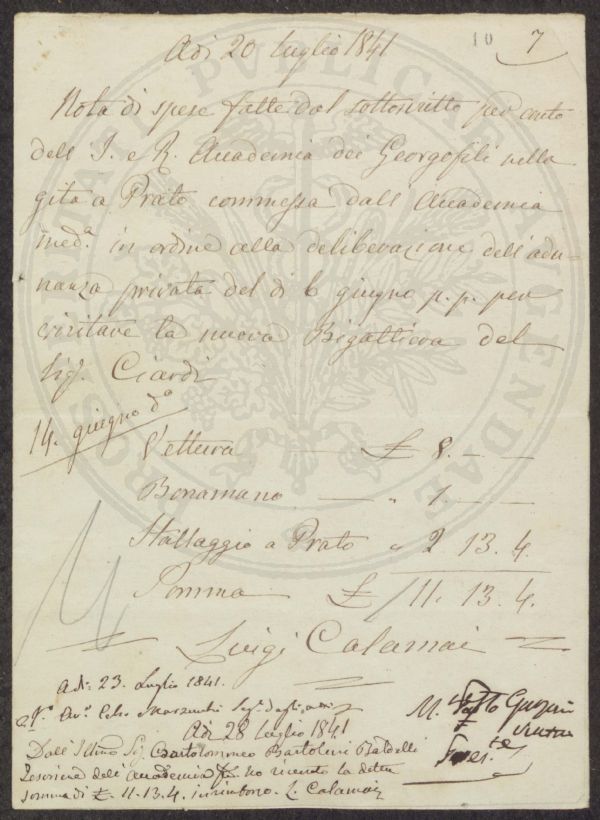 10 7
Adì 20 Luglio 1841
Nota di spese fatte dal sottoscritto per conto
dell' I. e R. Accademia dei Georgofili nella
gita a Prato commessa dall' Accademia
med.ª in ordine alla deliberazione dell' adu-
nanza privata del dì 6 giugno p. p. per
visitare la nuova Bigattiera del
Sig. Ciardi
14. giugno d.º
Vettura — £ 8. — —
Bonamano — " 1 — —
Stallaggio a Prato " 2 13. 4.
Somma £ 11. 13. 4.
Luigi Calamai
Adì: 23. Luglio 1841.
Adì 28 Luglio 1841
Dall' Illmo Sig. Bartolommeo Bartolini Baldelli
Tesoriere dell' Accademia ho ricevuto la detta
somma di £. 11. 13. 4. in rimborso. L. Calamai
PROSPERITATI PUBLICAE AUGENDAE